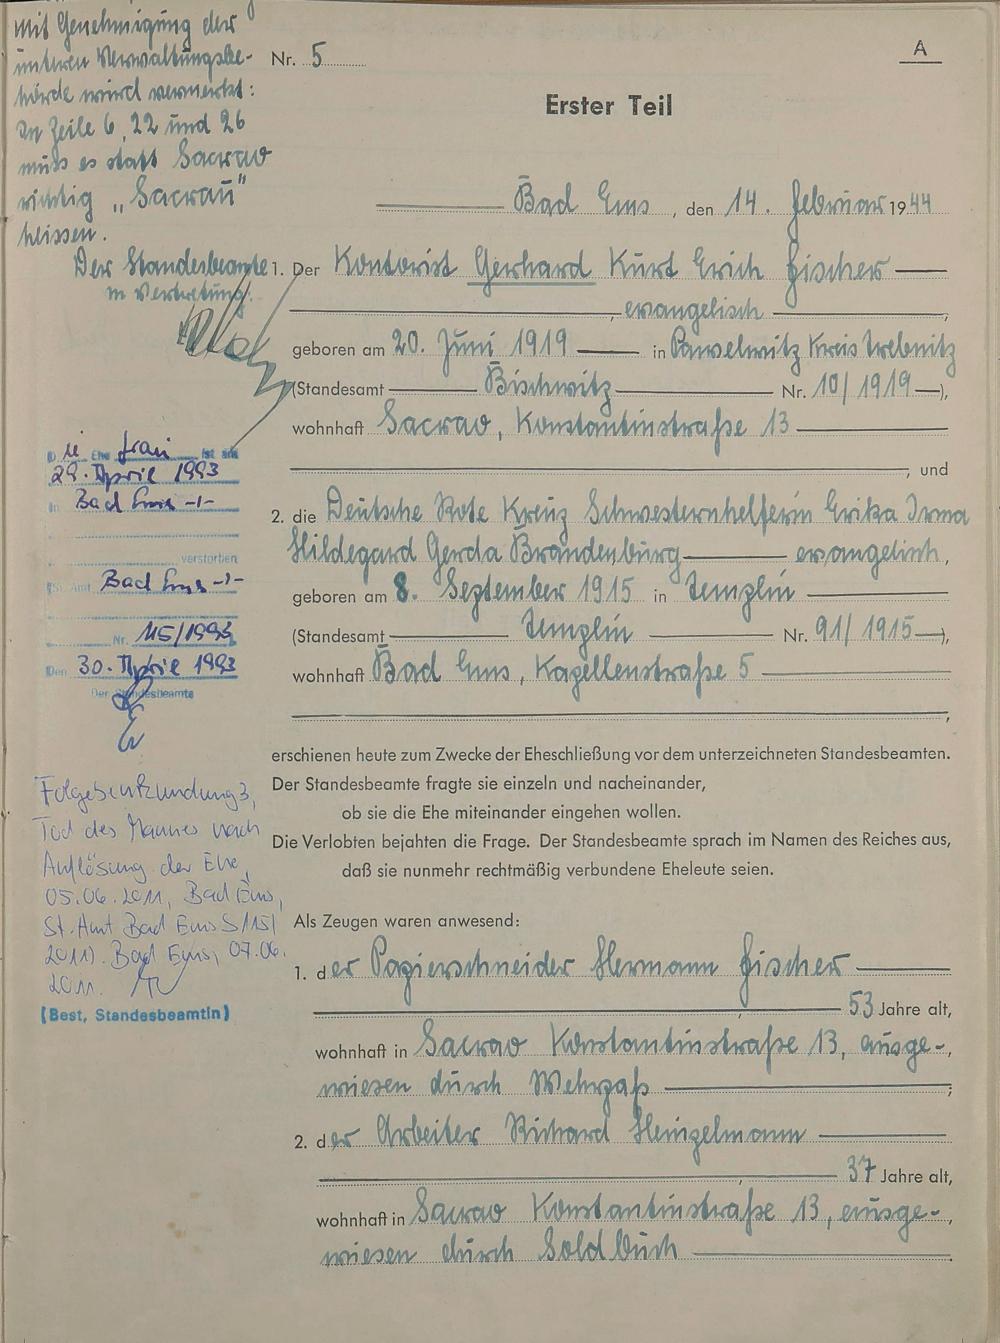 Mit Genehmigung der
unteren Verwaltungsbe-
hörde wird vermerkt:
In Zeile 6, 22 und 26
muss es statt Sacrao
richtig „Sacrau"
heissen.
Der Standesbeamte
in Vertretung.
Die Ehe frau ist am
29. April 1993
in Bad Ems -/-
verstorben
(St. Amt Bad Ems -/-
Nr. 115/1993
Den 30. April 1993
Der Standesbeamte
Folgebeurkundung 3,
Tod des Mannes nach
Auflösung der Ehe,
05.06.2011, Bad Ems,
St. Amt Bad Ems S 115/
2011). Bad Ems, 07.06.
2011.
(Best, Standesbeamtin)
Nr. 5
A
Erster Teil
Bad Ems, den 14. Februar 1944
1. Der Kontorist Gerhard Kurt Erich Fischer
, evangelisch,
geboren am 20. Juni 1919 in Pawelwitz Kreis Trebnitz
(Standesamt Bischwitz Nr. 10/1919),
wohnhaft Sacrao, Konstantinstraße 13
, und
2. die Deutsche Rote Kreuz Schwesternhelferin Erika Irma
Hildegard Gerda Brandenburg evangelisch,
geboren am 8. September 1915 in Templin
(Standesamt Templin Nr. 91/1915),
wohnhaft Bad Ems, Kapellenstraße 5
,
erschienen heute zum Zwecke der Eheschließung vor dem unterzeichneten Standesbeamten.
Der Standesbeamte fragte sie einzeln und nacheinander,
ob sie die Ehe miteinander eingehen wollen.
Die Verlobten bejahten die Frage. Der Standesbeamte sprach im Namen des Reiches aus,
daß sie nunmehr rechtmäßig verbundene Eheleute seien.
Als Zeugen waren anwesend:
1. der Papierschneider Hermann Fischer
, 53 Jahre alt,
wohnhaft in Sacrao Konstantinstraße 13, ausge-,
wiesen durch Wehrpaß ;
2. der Arbeiter Richard Heinzelmann
, 37 Jahre alt,
wohnhaft in Sacrao Konstantinstraße 13, ausge-,
wiesen durch Soldbuch